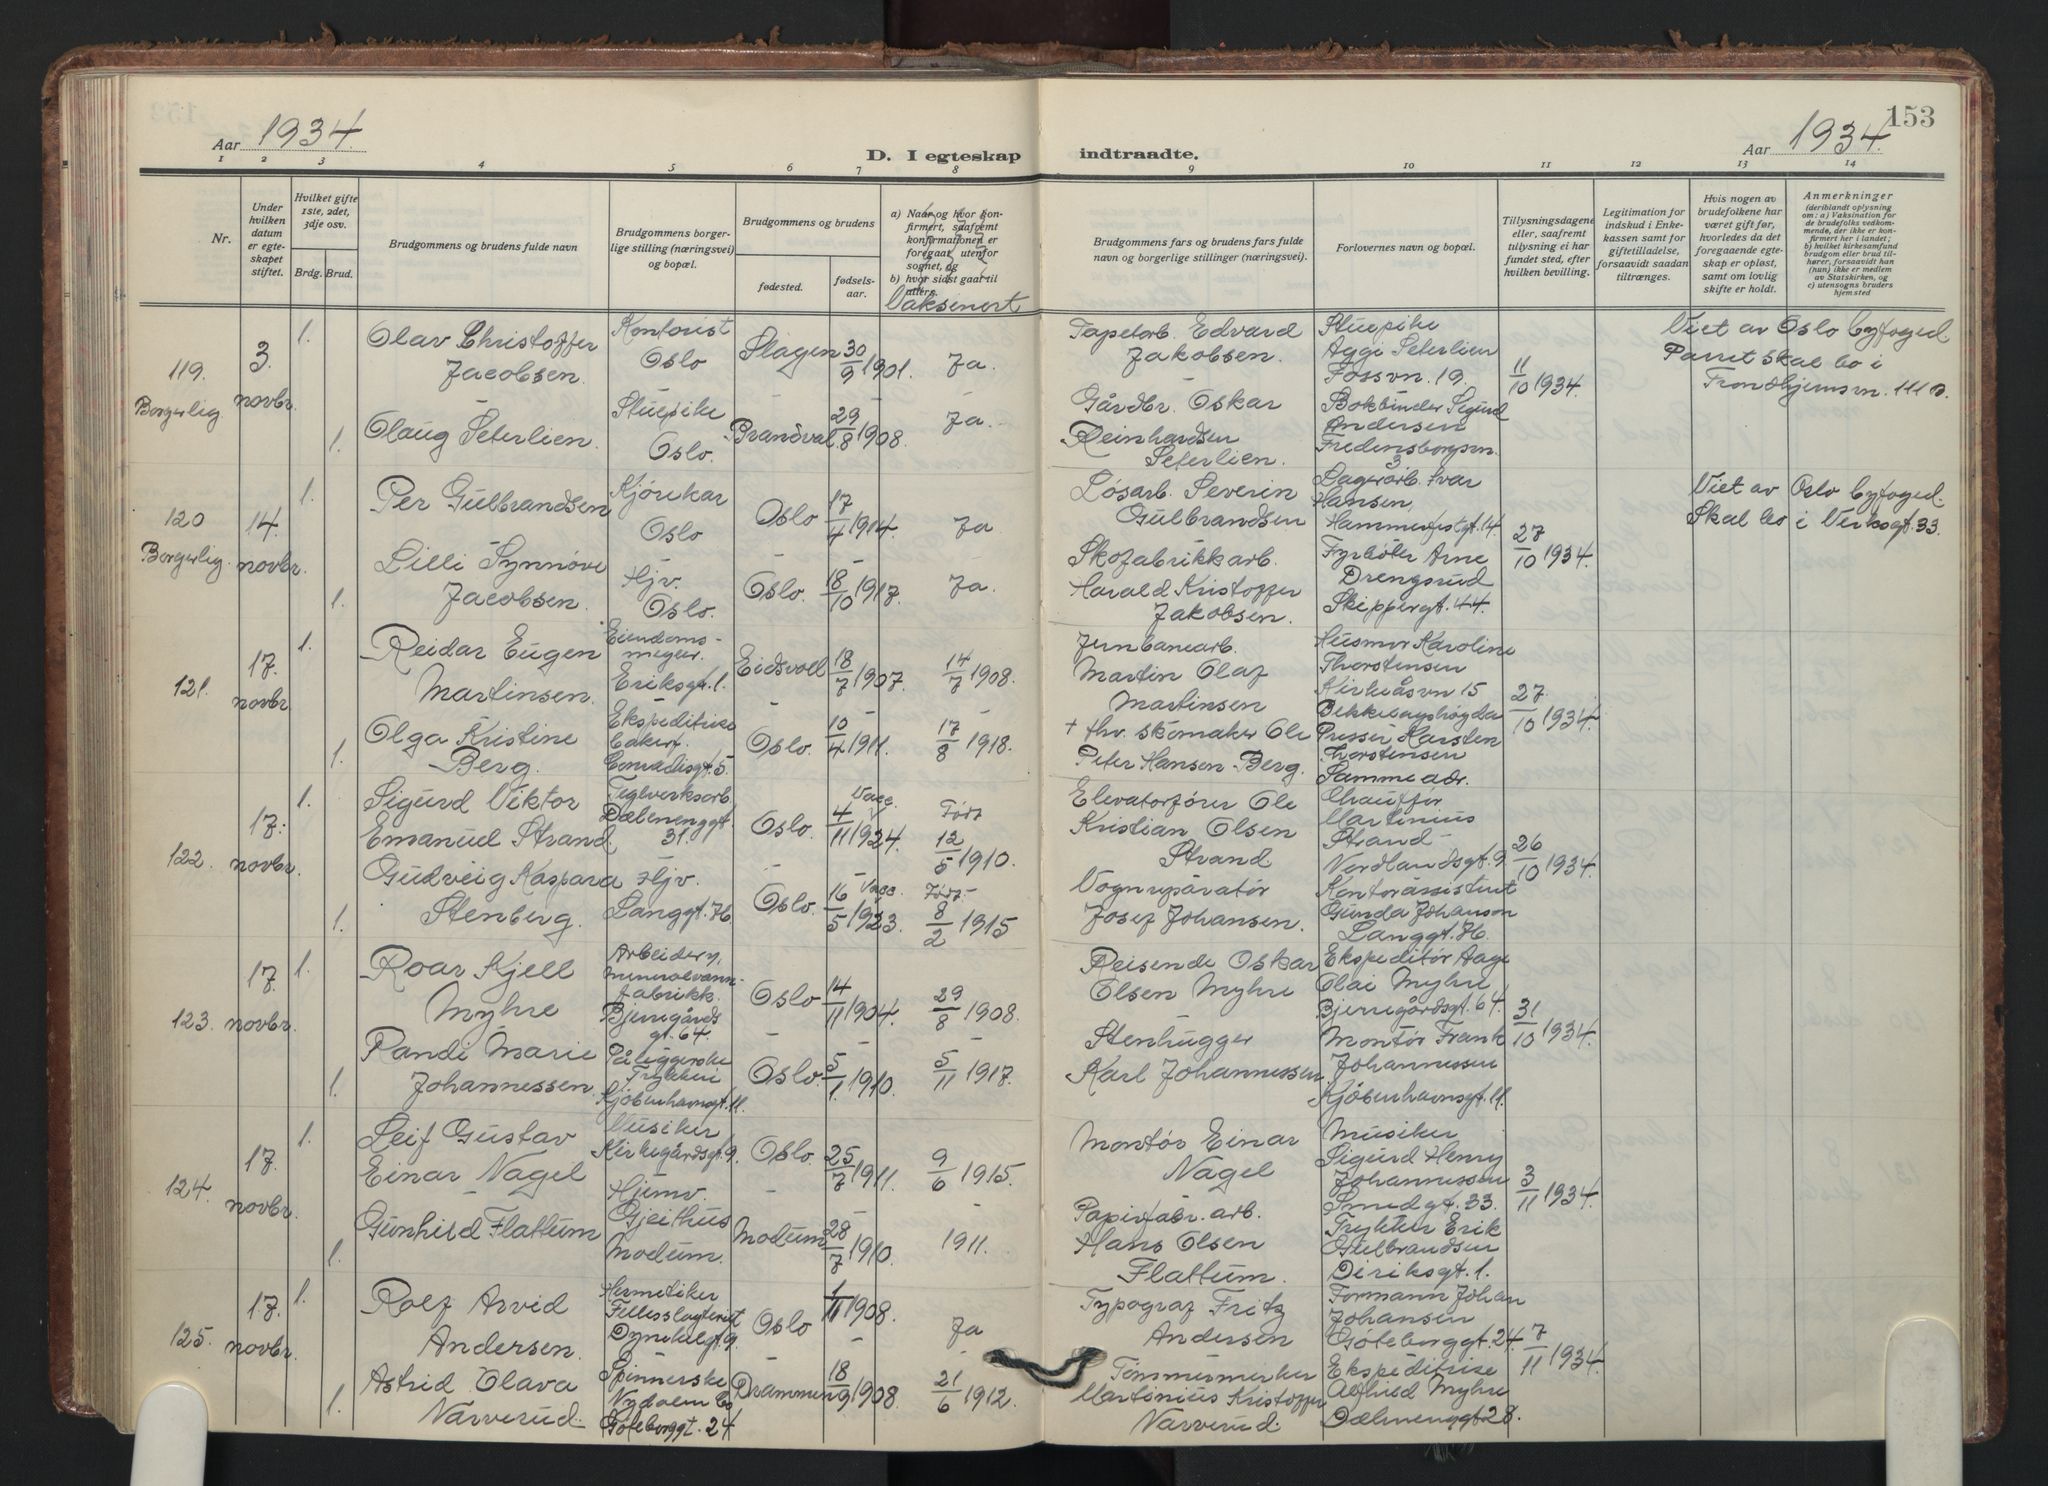 153
Aar 1934.
D. I egteskap
indtraadte.
Aar 1934.
1 2 3 4 5 6 7 8 9 10 11 12 13 14
Nr.
Under hvilken datum er egteskapet stiftet.
Hvilket gifte 1ste, 2det, 3dje osv.
Brdg. Brud.
Brudgommens og brudens fulde navn
Brudgommens borgerlige stilling (næringsvei) og bopæl.
Brudgommens og brudens
fødested.
fødselsaar.
a) Naar og hvor konfirmert, saafremt konfirmationen er foregaat utenfor sognet, og
b) hvor sidst gaat til alters.
Vaksinert
Brudgommens fars og brudens fars fulde navn og borgerlige stillinger (næringsvei).
Forlovernes navn og bopæl.
Tillysningsdagene eller, saafremt tillysning ei har fundet sted, efter hvilken bevilling.
Legitimation for indskud i Enkekassen samt for giftetilladelse, forsaavidt saadan tiltrænges.
Hvis nogen av brudefolkene har været gift før, hvorledes da det foregaaende egteskap er opløst, samt om lovlig skifte er holdt.
Anmerkninger
(deriblandt oplysning om: a) Vaksination for de brudefolks vedkommende, der ikke er konfirmert her i landet; b) hvilket kirkesamfund brudgom eller brud tilhører, forsaavidt han (hun) ikke er medlem av Statskirken, og c) utensogns bruders hjemsted
119. Borgerlig
3. novbr.
1. Olav Christoffer Jacobsen.
Kontorist Oslo
Slagen 30/9 1901. Ja.
Tapetarb. Edvard Jakobsen.
Stuepike Aggi Seterlien Fossvn. 19.
11/10 1934.
Viet av Oslo byfoged
Parret skal bo i
Trondhjemsvn. 111 D.
1. Olaug Seterlien.
Stuepike Oslo.
Brandval 29/8 1908. Ja.
Gårdbr. Oskar Reinhardsen Seterlien.
Bokbinder Sigurd Andersen Fredensborgvn. 3
120 Borgerlig
14. novbr.
1. Per Gulbrandsen
Kjørekar Oslo
Oslo 17/4 1914. Ja
Løsarb. Severin Gulbrandsen
Lagerarb. Ivar Hansen, Hammerfestgt. 14.
27/10 1934.
Viet av Oslo byfoged.
Skal bo i Verksgt. 33.
1. Lilli Synnøve Jacobsen.
Hjv. Oslo.
Oslo. 18/10 1917. Ja.
Skofabrikkarb. Harald Kristoffer Jakobsen.
Fyrbøter Arne Drengsrud Skippergt. 44.
121.
17. novbr.
1. Reidar Eugen Martinsen.
Eiendomsmegler. Eriksgt. 1.
Eidsvoll 18/7 1907. 14/7 1908.
Jernbanearb. Martin Olaf Martinsen
Husmor Karoline Thorstensen Kirkeåsvn 15 Bekkelagshøgda
27/10 1934.
1. Olga Kristine Berg.
Ekspeditrise Bakerf. Conradisgt. 5.
Oslo. 10/4 1911. 17/8 1918.
+ fhv. skomaker Ole Peter Hansen Berg.
Presser Karsten Thorstensen Samme adr.
122.
17. novbr.
1. Sigurd Viktor Emanuel Strand.
Teglverksarb. Dælenenggt. 31.
Oslo. 4/11 1924. Vacc. Født 12/5 1910.
Elevatorfører Ole Kristian Olsen Strand
Chauffør Martinius Strand Nordlandsgt. 9.
26/10 1934.
1. Gudveig Kaspara Stenberg.
Hjv. Langgt. 76.
Oslo. 16/5 1923. Vacc. Født 8/2 1915
Vognreparatør Josef Johansen.
Kontorassistent Gunda Johanson Langgt. 76.
123.
17. novbr.
1. Roar Kjell Myhre
Arbeider v. mineralvannfabrikk. Bjerregårds gt. 64.
Oslo 14/11 1904. 29/8 1908.
Reisende Oskar Olsen Myhre
Ekspeditør Aage Olai Myhre Bjerregårdsgt. 64.
31/10 1934.
1. Randi Marie Johannessen.
Påleggerske Trykkeri Kjøbenhavnsgt. 11.
Oslo 5/1 1910. 5/11 1917.
Stenhugger Karl Johannessen
Montør Frank Johannessen Kjøbenhavnsgt. 11.
124.
17. novbr.
1. Leif Gustav Einar Nagel
Musiker Kirkegårdsgt. 9.
Oslo. 25/7 1911. 9/6 1915.
Montør Einar Nagel
Musiker Sigurd Henry Johannessen Smedgt. 33.
3/11 1934.
1. Gunhild Flattum
Hjemv. Gjeithus Modum.
Modum 28/7 1910. 1911.
Papirfabr. arb. Hans Olsen Flattum.
Trykker Erik Gulbrandsen Diriksgt. 1.
125.
17. novbr.
1. Rolf Arvid Andersen.
Hermetiker Fellesslagteriet Dynekilgt. 9.
Oslo 1/11 1908. Ja
Typograf Fritz Andersen
Formann Johan Johansen Gøteborggt. 24.
7/11 1934.
1. Astrid Olava Narverud.
Spinnerske Nydalen Co Gøteborggt. 24
Drammen 18/9 1908. 21/6 1912.
Tømmermerker Martinius Kristoffer Narverud.
Ekspeditrise Alfhild Myhre Dælenenggt. 28.